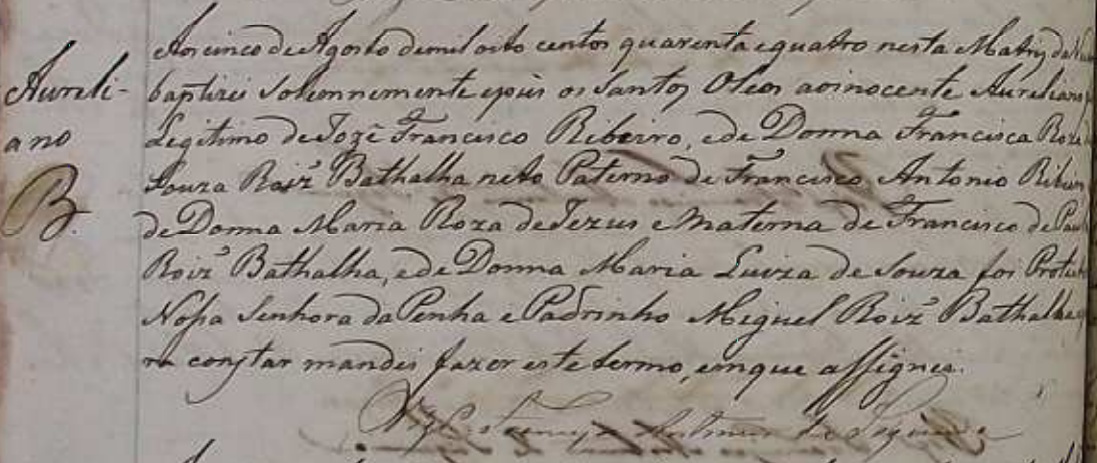 Aureli-
ano
B.
Aos cinco de Agosto de mil oito centos quarenta e quatro nesta Matriz da
baptizei Solennemente e puis os Santos Oleos ao inocente Aureliano
Legitimo de Jozé Francisco Ribeiro, e de Donna Francisca Roza
Souza Roiz Bathalha neto Paterno de Francisco Antonio Ribeiro
de Donna Maria Roza de Jezus e Materna de Francisco de Paula
Roiz Bathalha, e de Donna Maria Luiza de Souza foi Protect
Nossa Senhora da Penha e Padrinho Miguel Roiz Bathalha
ra constar mandei fazer este termo, em que assignei.